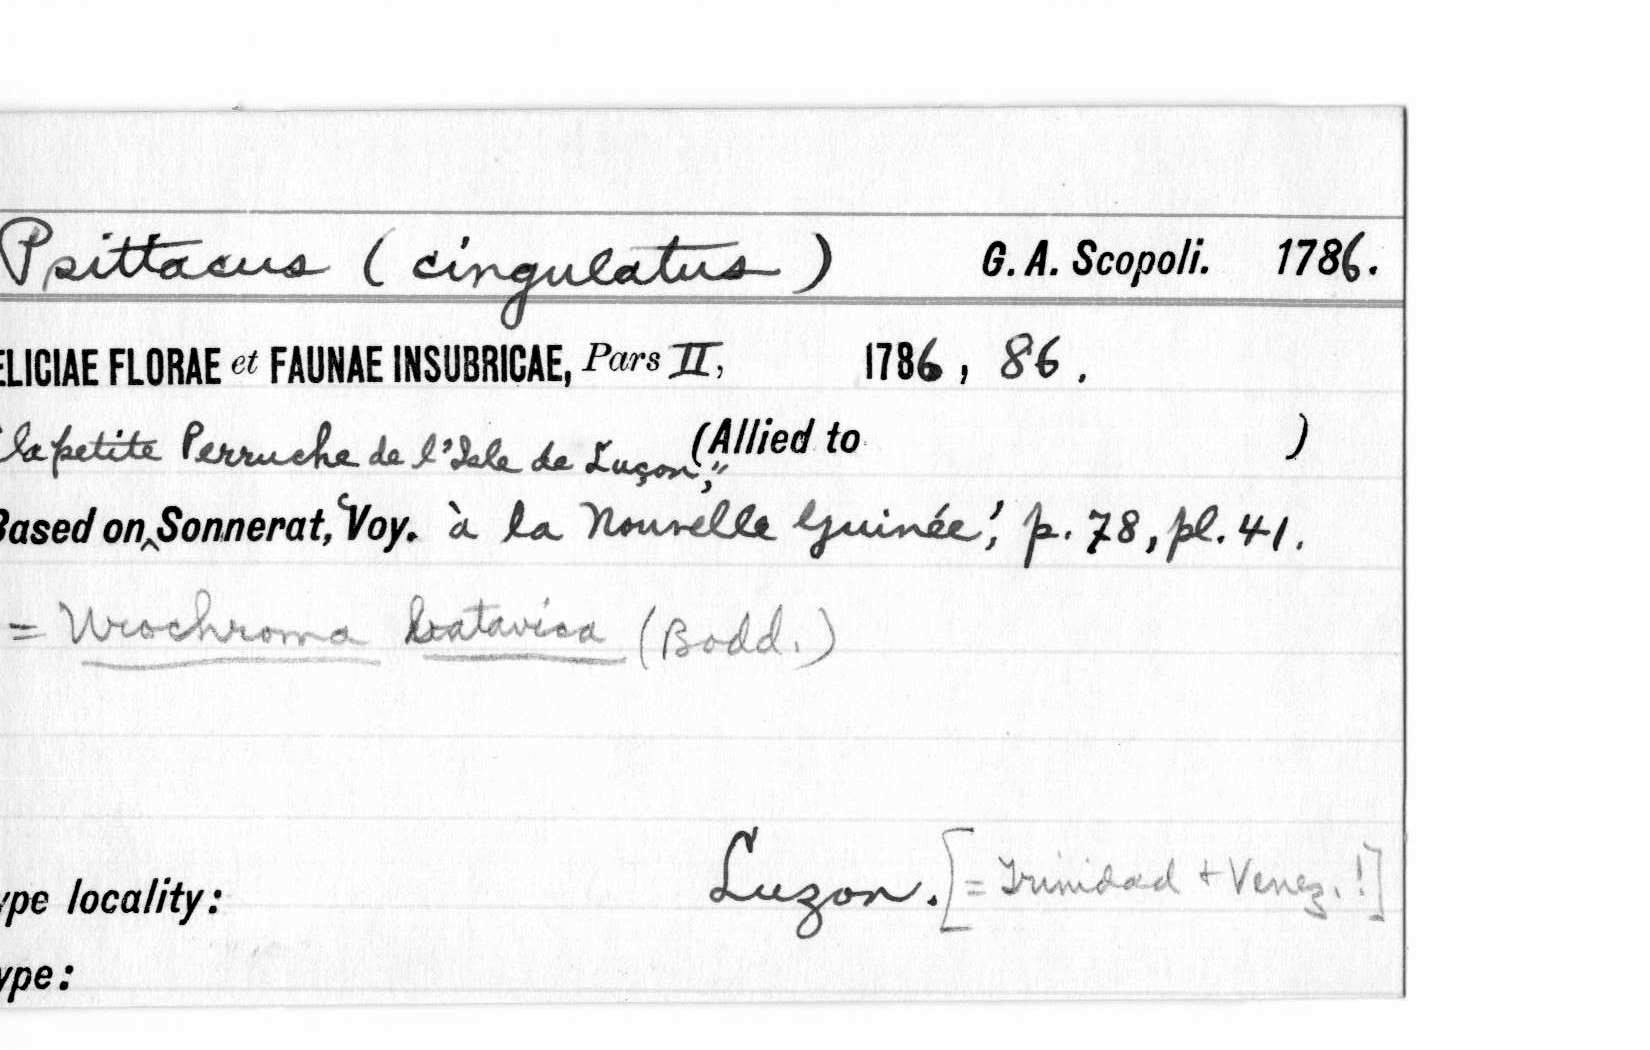 Psittacus (cingulatus) G. A. Scopoli. 1786.
ELICIAE FLORAE et FAUNAE INSUBRICAE, Pars II, 1786, 86.
"la petite Perruche de l'Isle de Luçon," (Allied to )
Based on ‸ Sonnerat, 'Voy. à la Nouvelle Guinée', p. 78, pl. 41.
= Urochroma batavica (Bodd.)
ype locality: Luzon. [= Trinidad + Venez.!]
ype: